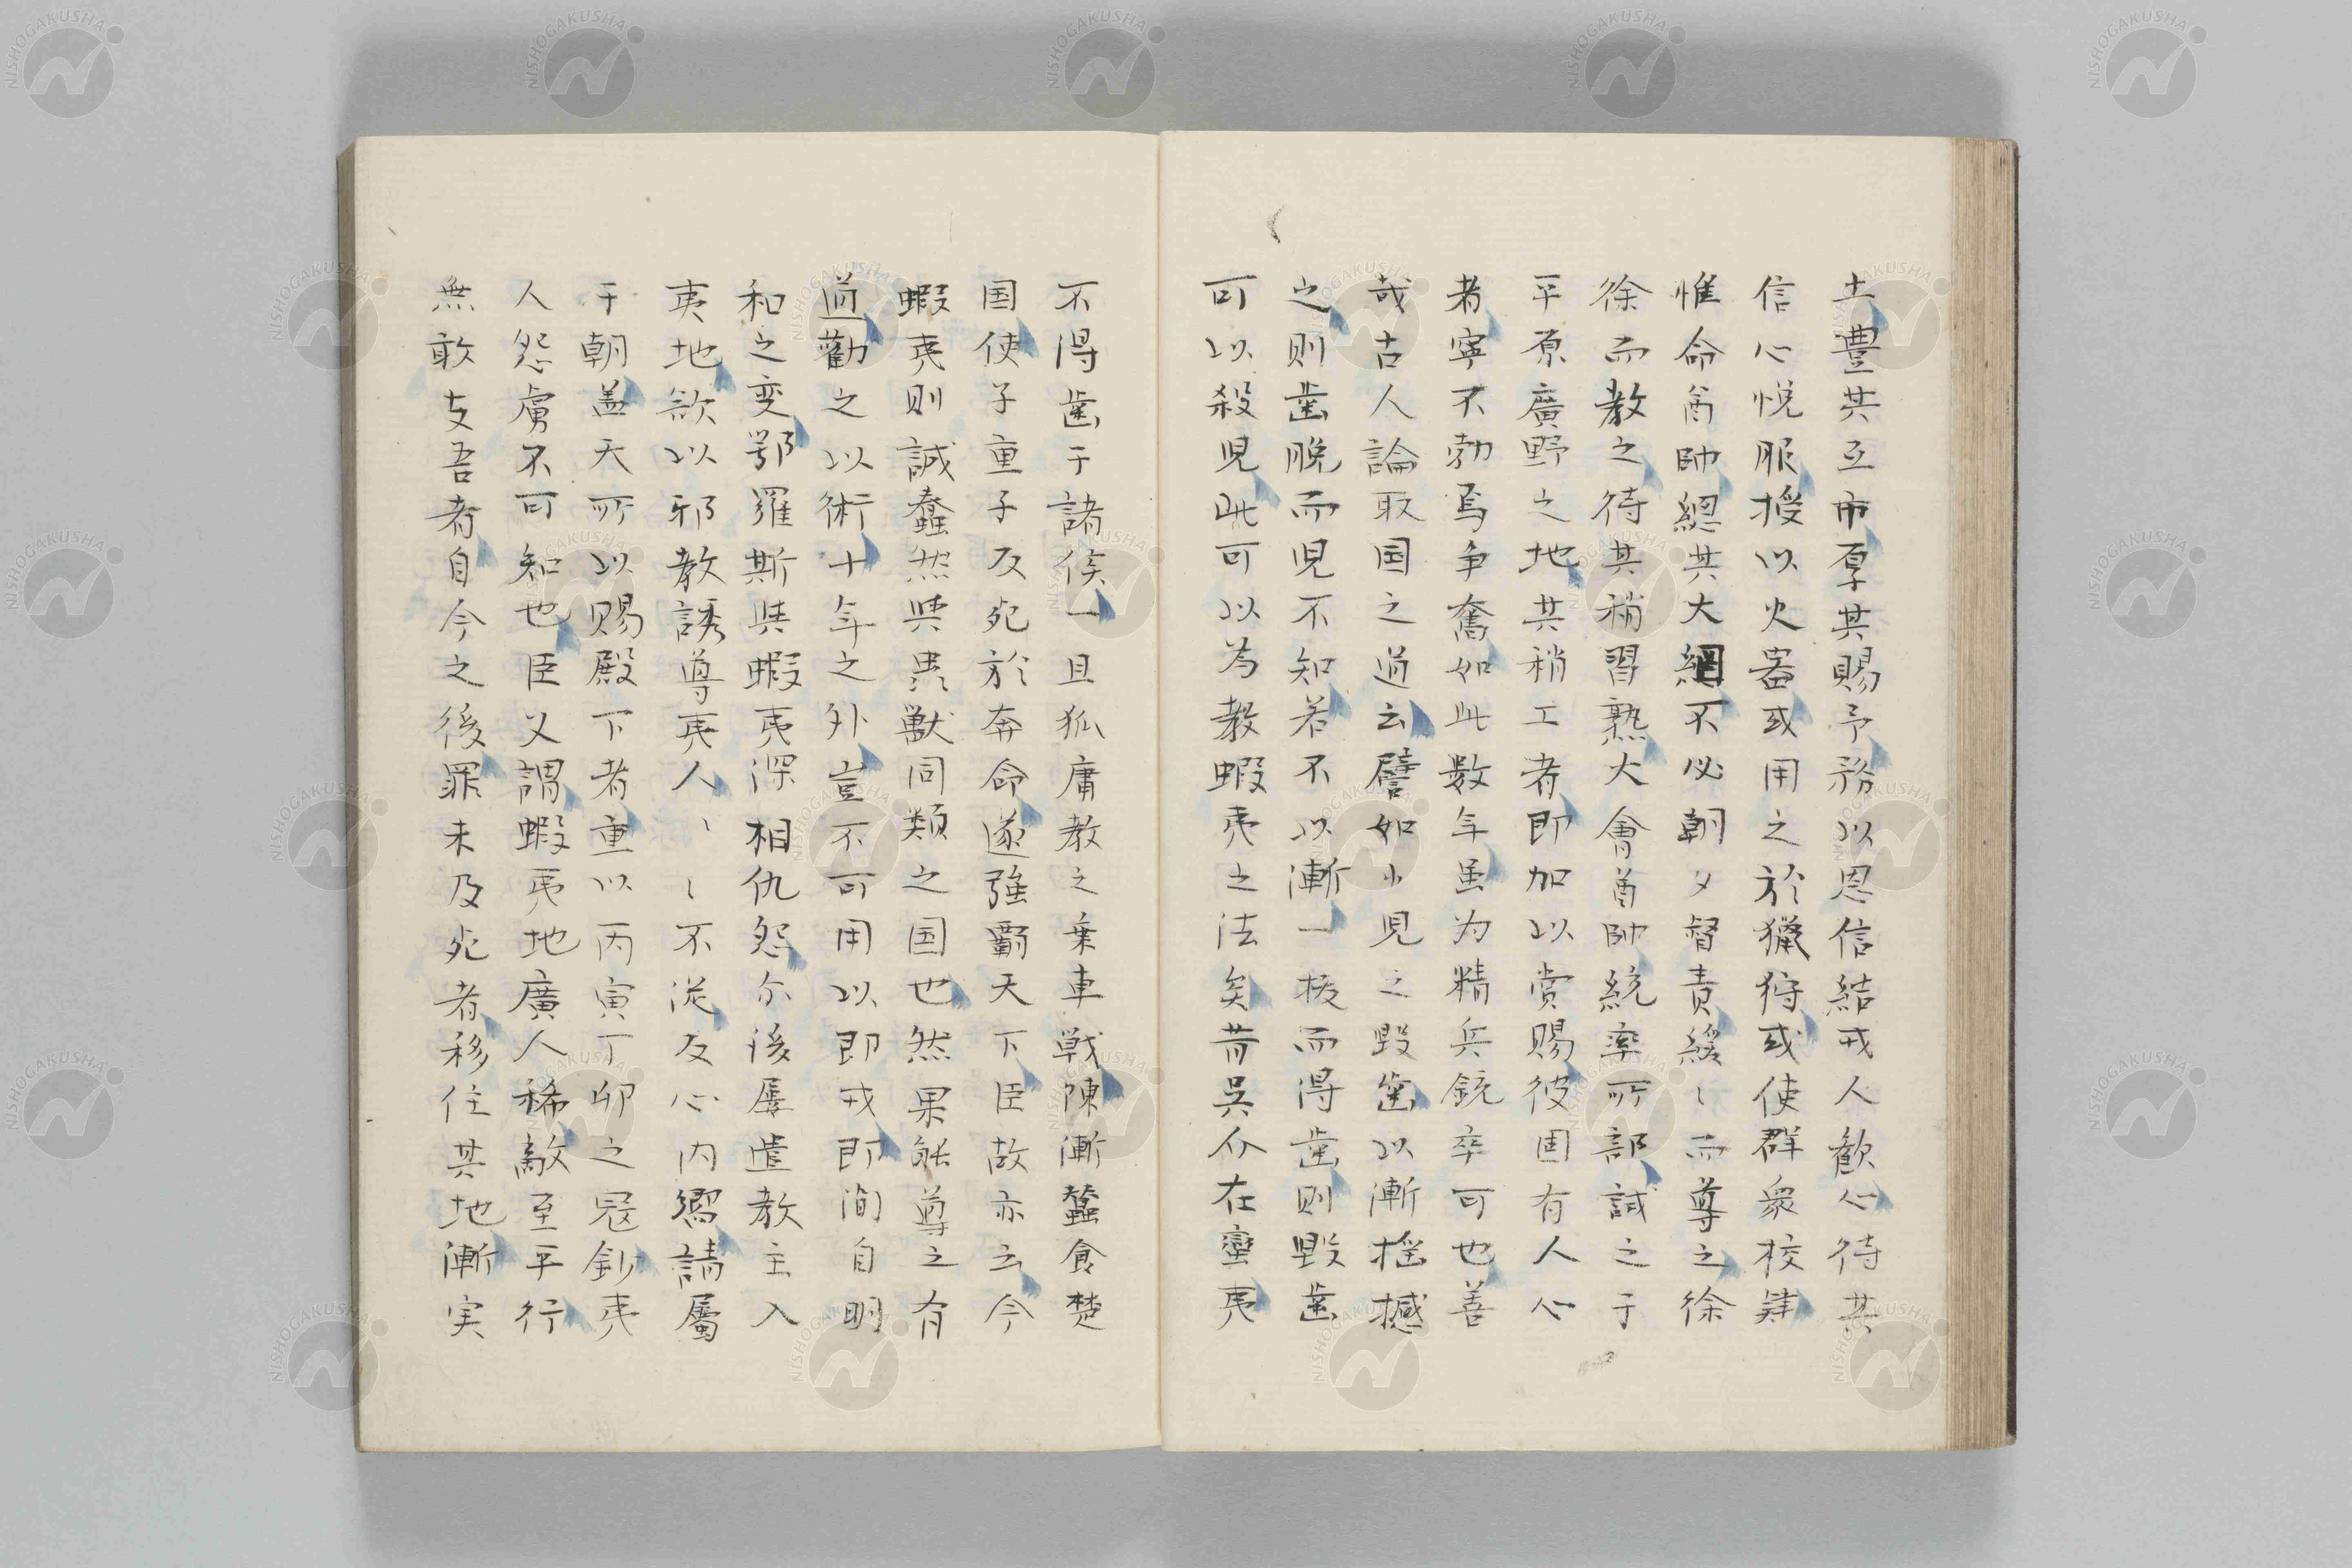 土豊其互市厚其賜予務以恩信結戎人歓心待其
信心悦服授以火器或用之於獵狩或使群衆校肄
惟命酋帥緫其大綱不必朝夕督責緩〻而導之徐
徐而教之待其稍習熟大會酋帥統率所部試之于
平原廣野之地其稍工者即加以賞賜彼固有人心
者寧不勃焉争奮如此数年虽为精兵鋭卒可也善
哉古人論取国之道云譬如小児之毀歯以漸揺撼
之則歯脱而児不知若不以漸一抜而得歯則毀歯
可以殺児此可以為教蝦夷之法矣昔呉介在蛮夷
不得歯于諸侯一旦狐庸教之乗車戦陳漸蠶食楚
国使子重子反死於奔命遂強覇天下臣故亦云今
蝦夷則誠蠢然與畏獣同類之国也然果能導之有
道勸之以術十年之外豈不可用以即戎即洵自明
和之変鄂羅斯與蝦夷深相仇怨尓後屡遣教主入
夷地欲以邪教誘導夷人〻〻不従反心内嚮請屬
于朝盖天所以賜殿下者重以丙寅丁卯之冦鈔夷
人怨虜不可知也臣又謂蝦夷地廣人稀敵至平行
無敢支吾者自今之後罪未及死者移住其地漸実